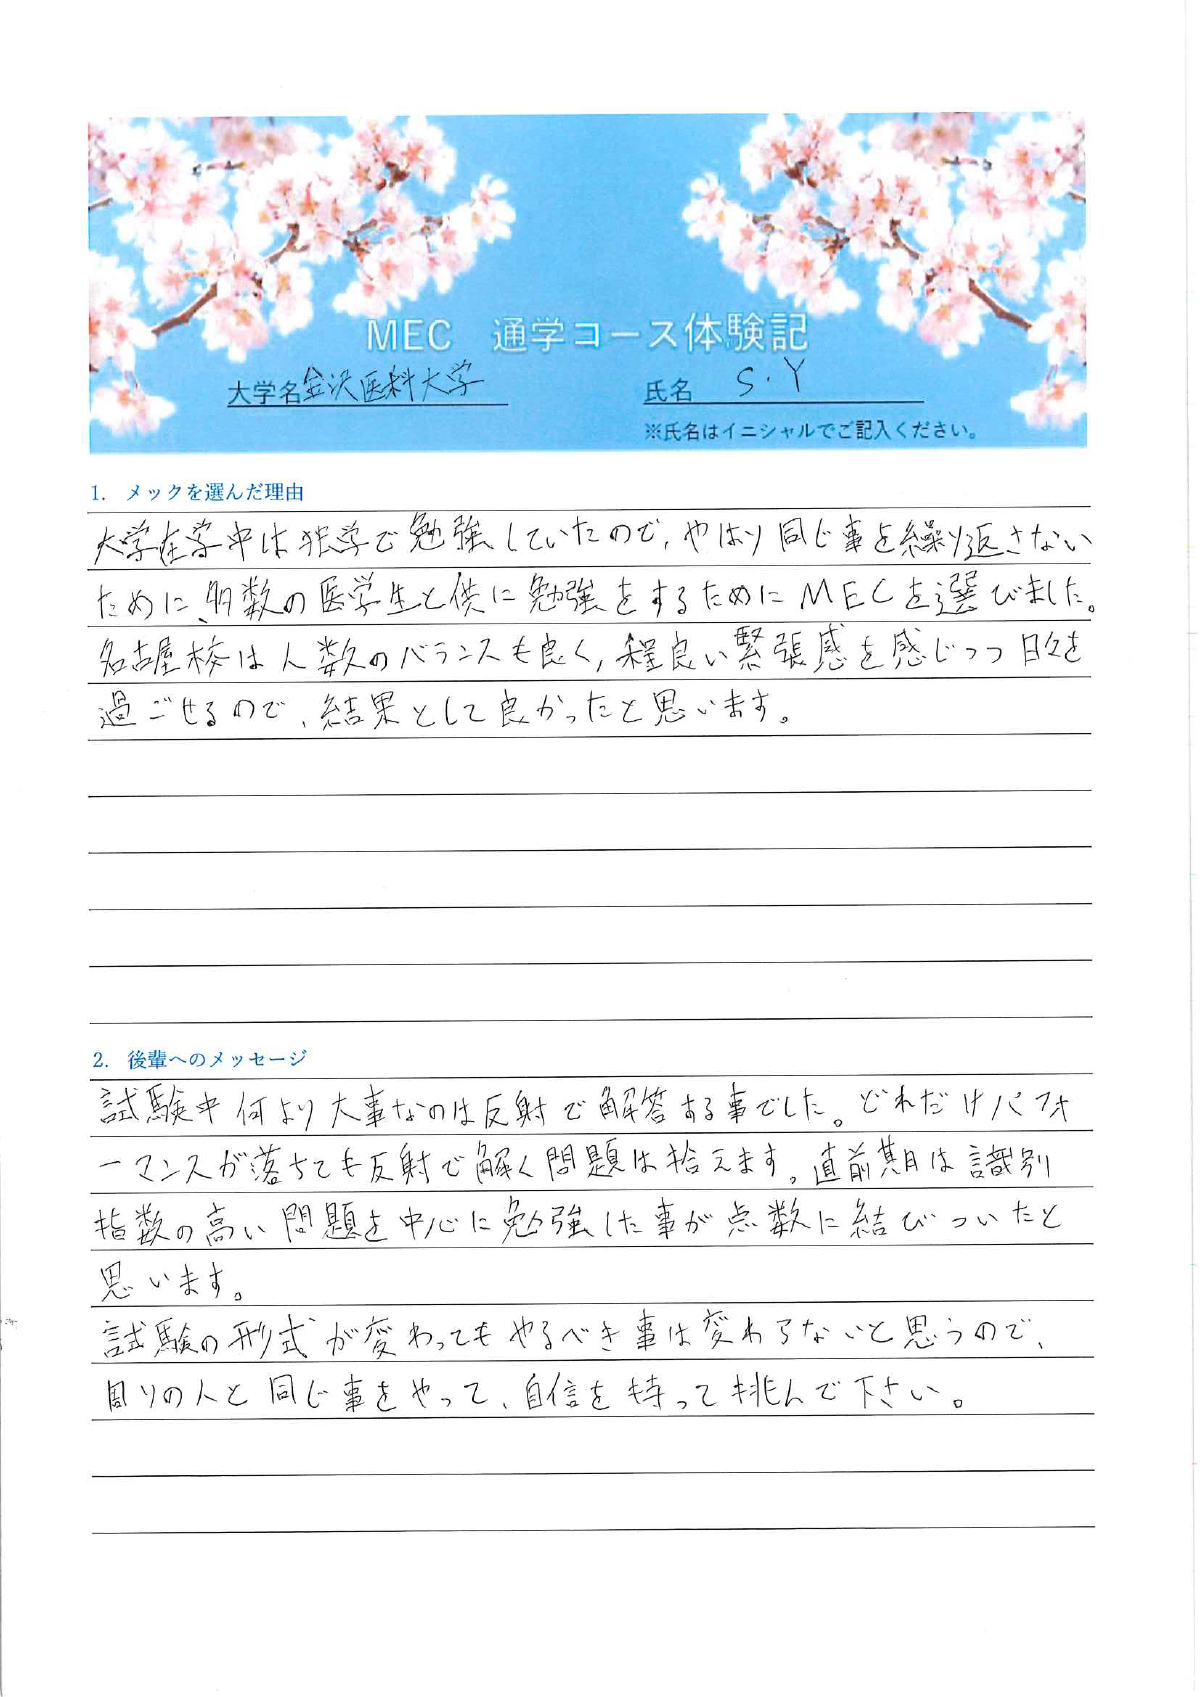 MEC 通学コース体験記
大学名 金沢医科大学 氏名 S.Y
※氏名はイニシャルでご記入ください。
1. メックを選んだ理由
大学在学中は独学で勉強していたので、やはり同じ事を繰り返さない
ために、多数の医学生と供に勉強をするためにMECを選びました。
名古屋校は人数のバランスも良く、程良い緊張感を感じつつ日々を
過ごせるので、結果として良かったと思います。
2. 後輩へのメッセージ
試験中何より大事なのは反射で解答する事でした。どれだけパフォ
ーマンスが落ちても反射で解く問題は拾えます。直前期は識別
指数の高い問題を中心に勉強した事が点数に結びついたと
思います。
試験の形式が変わってもやるべき事は変わらないと思うので、
周りの人と同じ事をやって、自信を持って挑んで下さい。